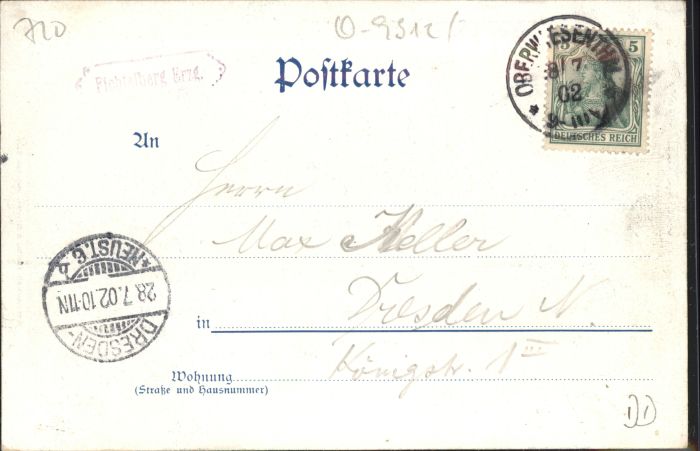 720
O-9312/
Fichtelberg Erzg.
Postkarte
OBERWIESENTHAL
8/7
02
5
DEUTSCHES REICH
An
Herrn
Max Keller
DRESDEN-
28.7.02.10-11N
*NEUST.6.b
Dresden N.
in
Königstr. 1 III
Wohnung
(Straße und Hausnummer)